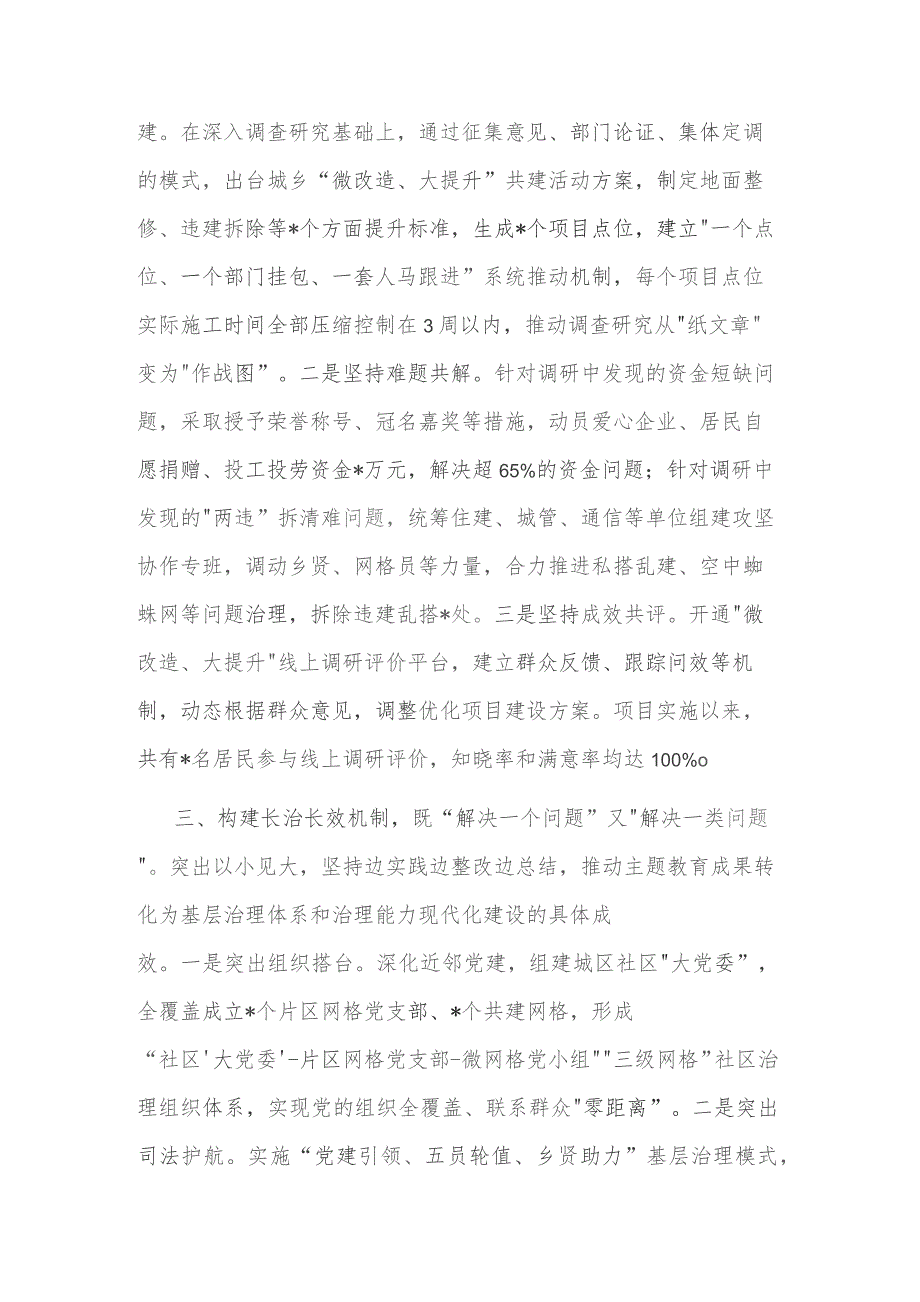 建。在深入调查研究基础上，通过征集意见、部门论证、集体定调
的模式，出台城乡“微改造、大提升”共建活动方案，制定地面整
修、违建拆除等*个方面提升标准，生成*个项目点位，建立"一个点
位、一个部门挂包、一套人马跟进”系统推动机制，每个项目点位
实际施工时间全部压缩控制在 3 周以内，推动调查研究从"纸文章"
变为"作战图”。二是坚持难题共解。针对调研中发现的资金短缺问
题，采取授予荣誉称号、冠名嘉奖等措施，动员爱心企业、居民自
愿捐赠、投工投劳资金*万元，解决超 65%的资金问题；针对调研中
发现的"两违”拆清难问题，统筹住建、城管、通信等单位组建攻坚
协作专班，调动乡贤、网格员等力量，合力推进私搭乱建、空中蜘
蛛网等问题治理，拆除违建乱搭*处。三是坚持成效共评。开通"微
改造、大提升"线上调研评价平台，建立群众反馈、跟踪问效等机
制，动态根据群众意见，调整优化项目建设方案。项目实施以来，
共有*名居民参与线上调研评价，知晓率和满意率均达 100%o
三、构建长治长效机制，既“解决一个问题”又"解决一类问题
"。突出以小见大，坚持边实践边整改边总结，推动主题教育成果转
化为基层治理体系和治理能力现代化建设的具体成
效。一是突出组织搭台。深化近邻党建，组建城区社区"大党委”，
全覆盖成立*个片区网格党支部、*个共建网格，形成
“社区'大党委'-片区网格党支部-微网格党小组""三级网格”社区治
理组织体系，实现党的组织全覆盖、联系群众"零距离”。二是突出
司法护航。实施“党建引领、五员轮值、乡贤助力”基层治理模式，